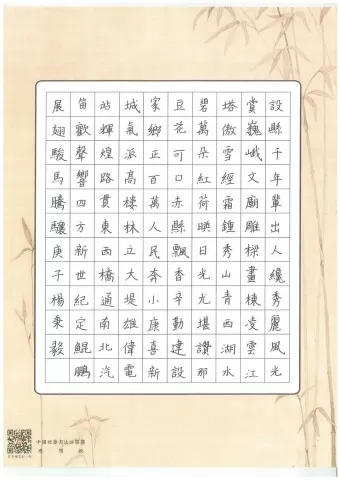 設縣千年輩出人纔秀麗風光
賞巍峨文廟雕樑畫棟凌雲江
塔傲雪經霜鍾秀山青西湖水
碧萬朵紅荷映日光尤堪讚那
豆花可口赤縣飄香辛勤建設
家鄉正百萬人民奔小康喜新
城氣派高樓林立大堤雄偉電
站輝煌路貫東西橋通南北汽
笛歡聲響四方新世紀定鯤鵬
展翅駿馬騰驤庚子楊秉毅